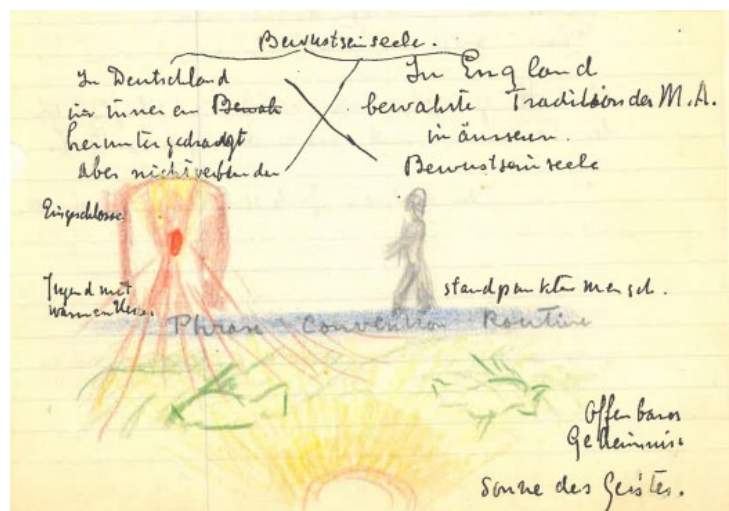 Bewustseinseele.
In Deutschland
im inneren
heruntergedrängt
aber nicht verbunden
In England
bewahrte Tradition der M.A.
in äussern.
Bewustseinseele
Eingeschlossen
Jugend mit
warmen
standpunkter mensch.
Phrase Convention Routine
Offenbares
Geheimnis
Sonne des Geistes.